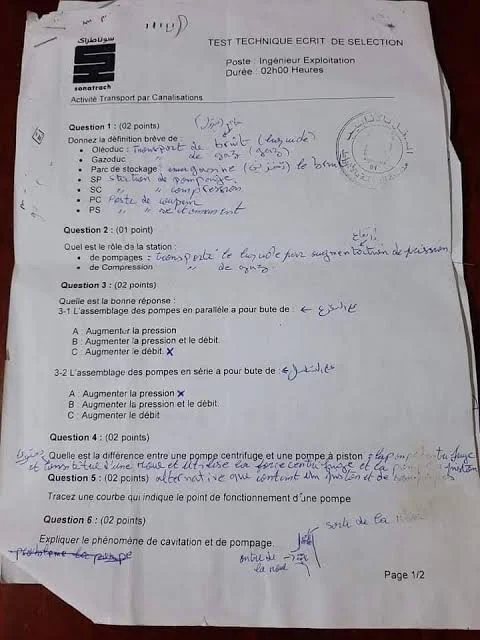 سوناطراك
sonatrach
TEST TECHNIQUE ECRIT DE SELECTION
Poste : Ingénieur Exploitation
Durée : 02h00 Heures
Activité Transport par Canalisations
Question 1 : (02 points)
Donnez la définition brève de :
• Oléoduc : transport de brut (liquide)
• Gazoduc " de gaz (gaz)
• Parc de stockage : le brut
• SP station de pompage
• SC " " compression
• PC Poste de coupure
• PS " " sectionnement
Question 2 : (01 point)
Quel est le rôle de la station :
• de pompages : transporté le liquide par augmentation de pression
• de Compression " de gaz
Question 3 : (02 points)
Quelle est la bonne réponse :
3-1 L'assemblage des pompes en parallèle a pour bute de :
A : Augmenter la pression
B : Augmenter la pression et le débit.
C : Augmenter le débit. x
3-2 L'assemblage des pompes en série a pour bute de :
A : Augmenter la pression x
B : Augmenter la pression et le débit.
C : Augmenter le débit
Question 4 : (02 points)
Quelle est la différence entre une pompe centrifuge et une pompe à piston : la pompe centrifuge
et constitué d'une roue et utilise la force centrifuge et la pompe piston
Question 5 : (02 points) alternative que contient un piston et de
Tracez une courbe qui indique le point de fonctionnement d'une pompe
Question 6 : (02 points)
sorte de la roue
Expliquer le phénomène de cavitation et de pompage.
entre de
la roue
problème la pompe
Page 1/2